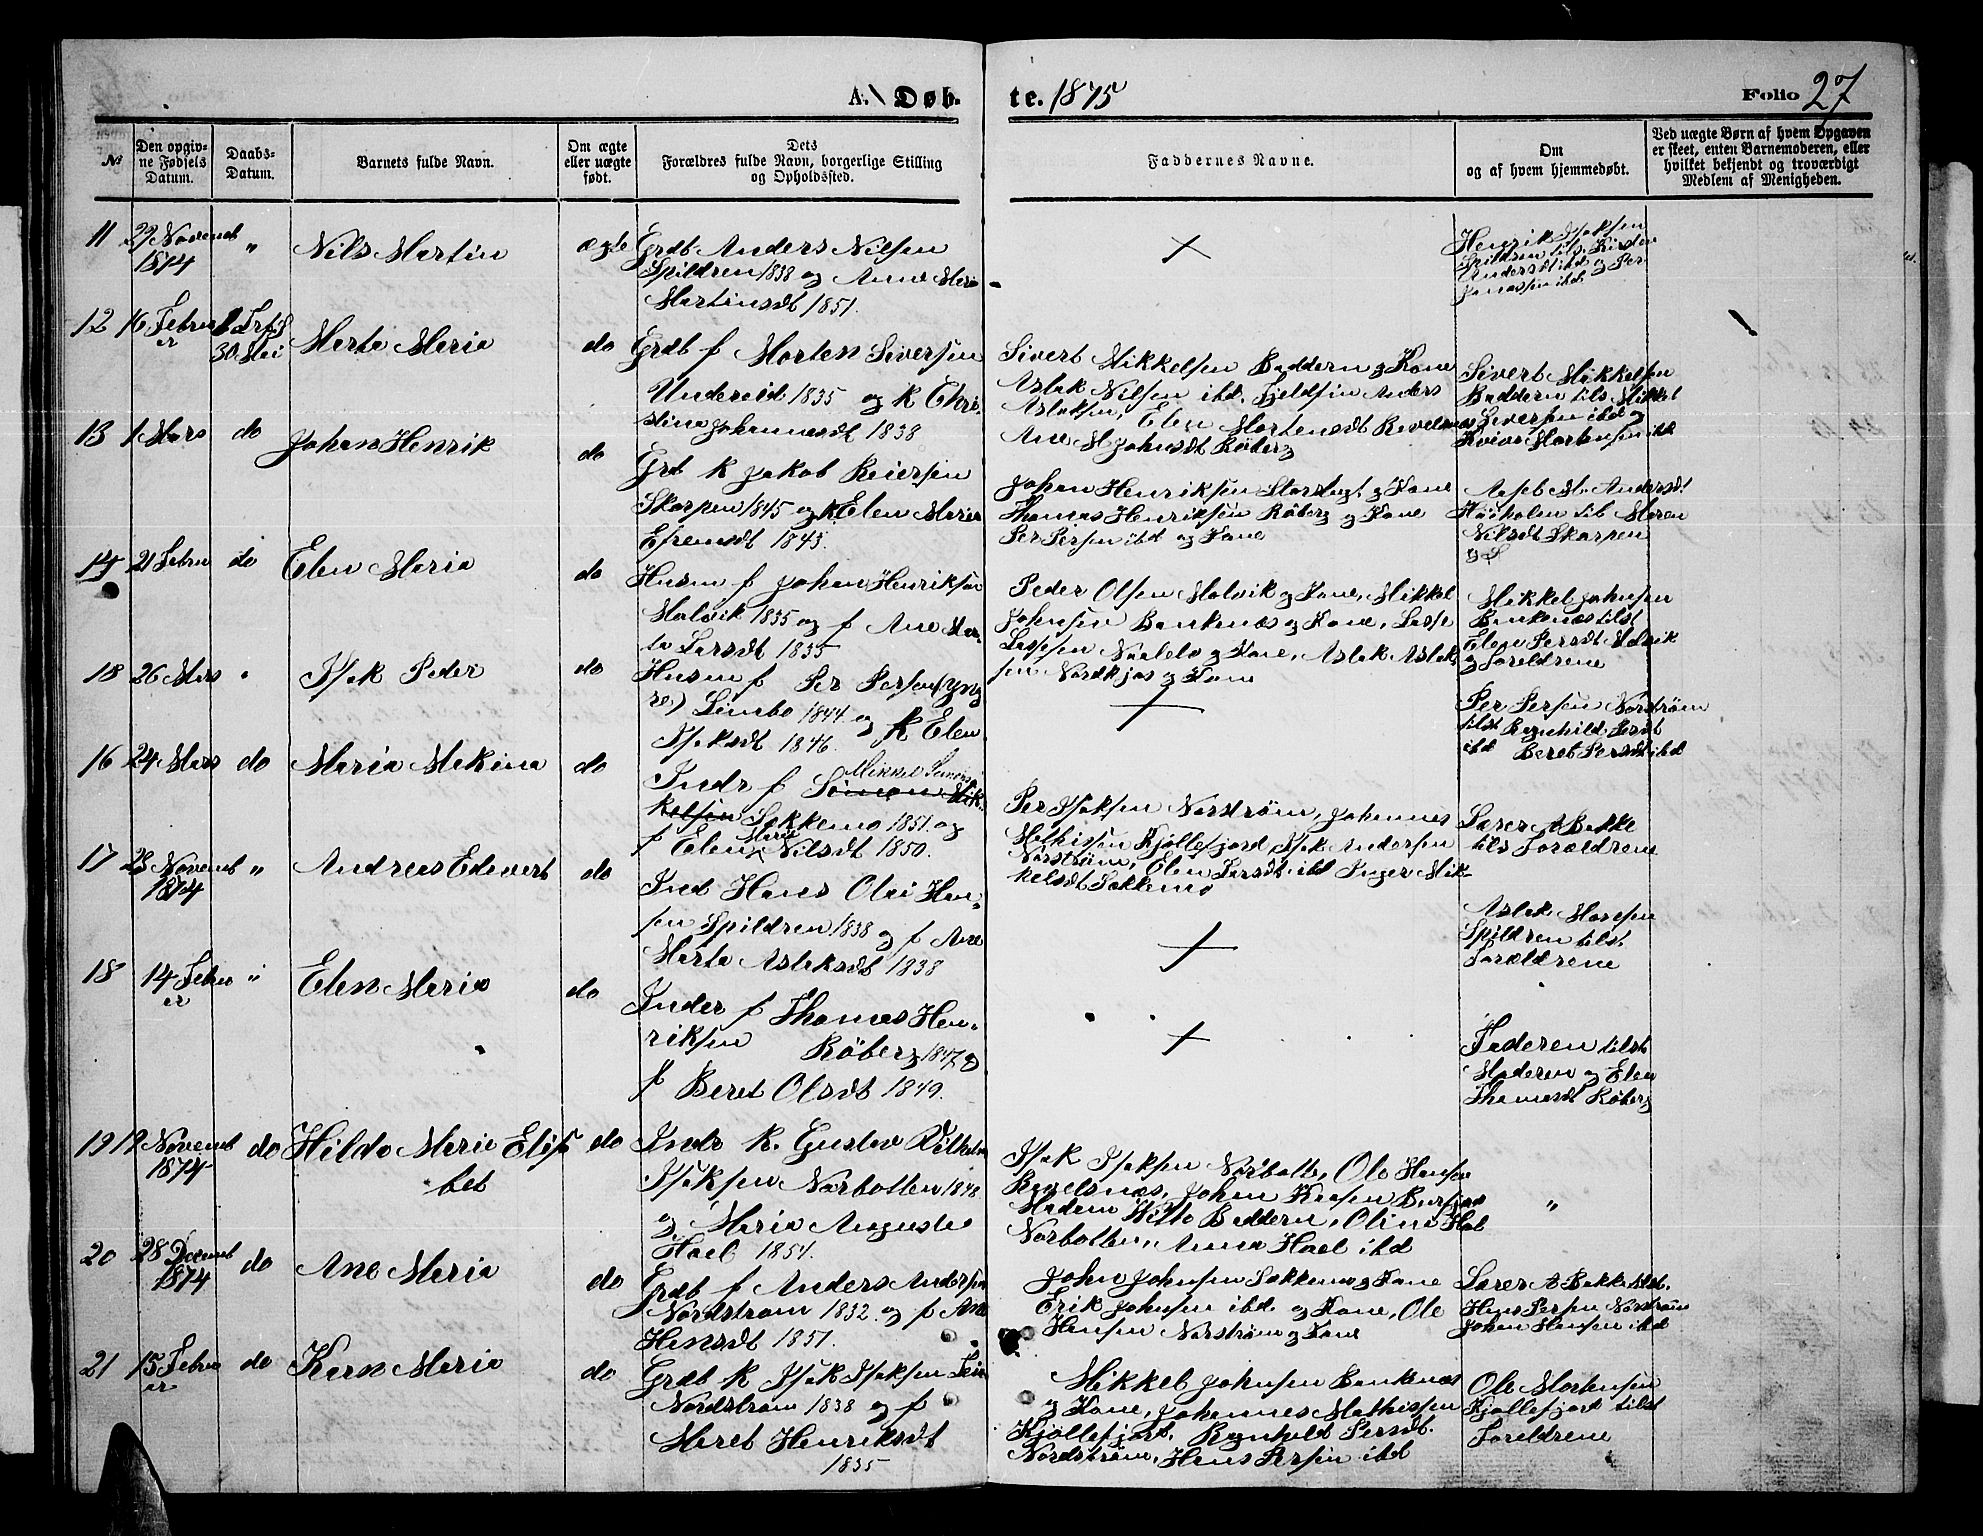 A. Døb-
te. 1875
Folio 27
№
Den opgiv-
ne Fødsels
Datum.
Daabs-
Datum.
Barnets fulde Navn.
Om ægte
eller uægte
født.
Dets
Forældres fulde Navn, borgerlige Stilling
og Opholdssted.
Faddernes Navne.
Om
og af hvem hjemmedøbt.
Ved uægte Børn af hvem Opgaven
er skeet, enten Barnemoderen, eller
hvilket bekjendt og troværdigt
Medlem af Menigheden.
11 29 Novemb
1874
"
Nils Martin
ægte
Grdb Anders Nilsen
Spildren 1838 og Ane Maria
Martinsdt 1851.
Henrik Isaksen
Spildren tils. Kirsten
Andersdt ibd og Per
Jonassen ibd
12 16 Februa
er
30 Mai
Marta Maria
do
Grdb f Morten Siversen
Undereid 1835 og K Chri-
stina Johannesdt 1838
Sivert Mikkelsen Baddern og Kone
Aslak Nilsen ibd, Fjeldfin Anders
Aslaksen, Elen Mortensdt Revelsnæs
Ane M Johnsdt Røberg
Sivert Mikkelsen
Baddern tils Mikkel
Siversen ibd og
Mortensen ibd
13 1 Mars do
Johan Henrik
do
Grb K Jakob Reiersen
Skarpen 1845 og K Elen Maria
Efremsdt 1843.
Johan Henriksen Storslagt og Kone
Thomas Henriksen Røberg og Kone
Per Persen ibd og Kone
M. Andersdt
til Maren
Nilsdt Skarpen
14 21 Febru do
Elen Maria
do
Husm f Johan Henriksen
Malvik 1835 og f Ane Mar-
ta Larsdt 1835
Peder Olsen Malvik og Kone, Mikkel
Johnsen Bankenæs og Kone, Lasse
Lassesen og Kone, Aslak Aslak
sen Nordkjos og Kone
Mikkel Johnsen
Bankenæs tilst
Elen Persdt Malvik
og Foreldrene
18 26 Mars "
Isak Peder
do
Husm f Per Persen (yng
re) Simbo 1844 og K Elen
Isaksdt 1846.
Per Persen Norstrøm
tilst Ragnhild Persdt
ibd Beret Persdt ibd
16 24 Mars do
Maria Makina
do
Indr f Mikkel Simons
Simon Mik-
kelsen Sakkemo 1851 og
f Elen Marit Nilsdt 1850.
Per Isaksen Norstrøm, Johannes
Mathissen Kjøllefjord, Isak Andersen
Norstrøm, Elen Larsdt ibd Inger Mik-
kelsdt Sakkemo
Lærer A Bakke
tils Forældrene
17 28 Novemb
1874
"
Andreas Edevert
do
Ind Hans Olai Han-
sen Spildren 1838 og f Ane
Marta Aslaksdt 1838
Aslak Monsen
Spildren tilst
Forældrene
18 14 Febru
er
"
Elen Maria
do
Inder f Thomas Hen-
riksen Røberg 1847 og
f Beret Olsdt 1849.
Faderen tilst
Moderen og Elen
Thomasdt Røberg
19 19 Novemb
1874
do
Hilda Maria Elisa
bet
do
Indr K. Gustav Vilhelm
Isaksen Norbotten 1848
og Maria Augusta
Hael 1854.
Isak Isaksen Norbotn, Ole Hansen
Revelsnæs, Johan Burfjord
Madam Baddern, Oline Hol
Norbotten, Anna Hael ibd
"
20 28 Decemb
1874
do
Ane Maria
do
Grdb f Anders Andersen
Nordstrøm 1832 og f Ane
Hansdt 1851.
John Johnsen Sakkemo og Kone
Erik Johnsen ibd og Kone, Ole
Hansen Norstrøm og Kone
Lærer A Bakke tilst.
Hans Persen Norstrøm
Johan Hansen ibd
21 15 Febru
er
do
Karn Maria
do
Grdb K Isak Isaksen
Nordstrøm 1838 og f
Maret Henriksdt
1835
Mikkel Johnsen Bankenæs
og Kone, Johannes Mathissen
Kjøllefjord, Ragnhild Persdt.
Nordstrøm, Hans Persen ibd
Ole Mortensen
Kjøllefjord tilst
Foreldrene